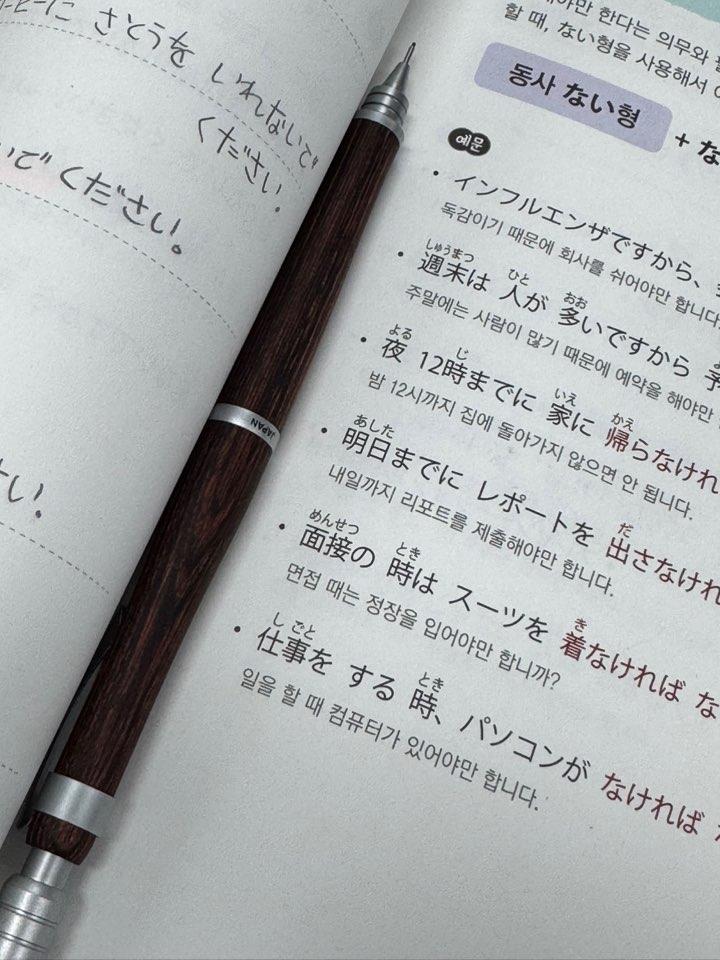 さとうを いれないで
ください.
いで ください。
さい.
JAPAN
한다는 의무와
할 때, ない형을 사용해서
동사 ない형 +
예문
インフルエンザですから、
독감이기 때문에 회사를 쉬어야만 합니다.
しゅうまつ ひと おお
週末は 人が 多いですから
주말에는 사람이 많기 때문에 예약을 해야만
よる じ いえ かえ
夜 12時までに 家に 帰らなければ
밤 12시까지 집에 돌아가지 않으면 안 됩니다.
あした だ
明日までに レポートを 出さなければ
내일까지 리포트를 제출해야만 합니다.
めんせつ とき き
面接の 時は スーツを 着なければ な
면접 때는 정장을 입어야만 합니까?
しごと とき
仕事を する 時、パソコンが なければ
일을 할 때 컴퓨터가 있어야만 합니다.